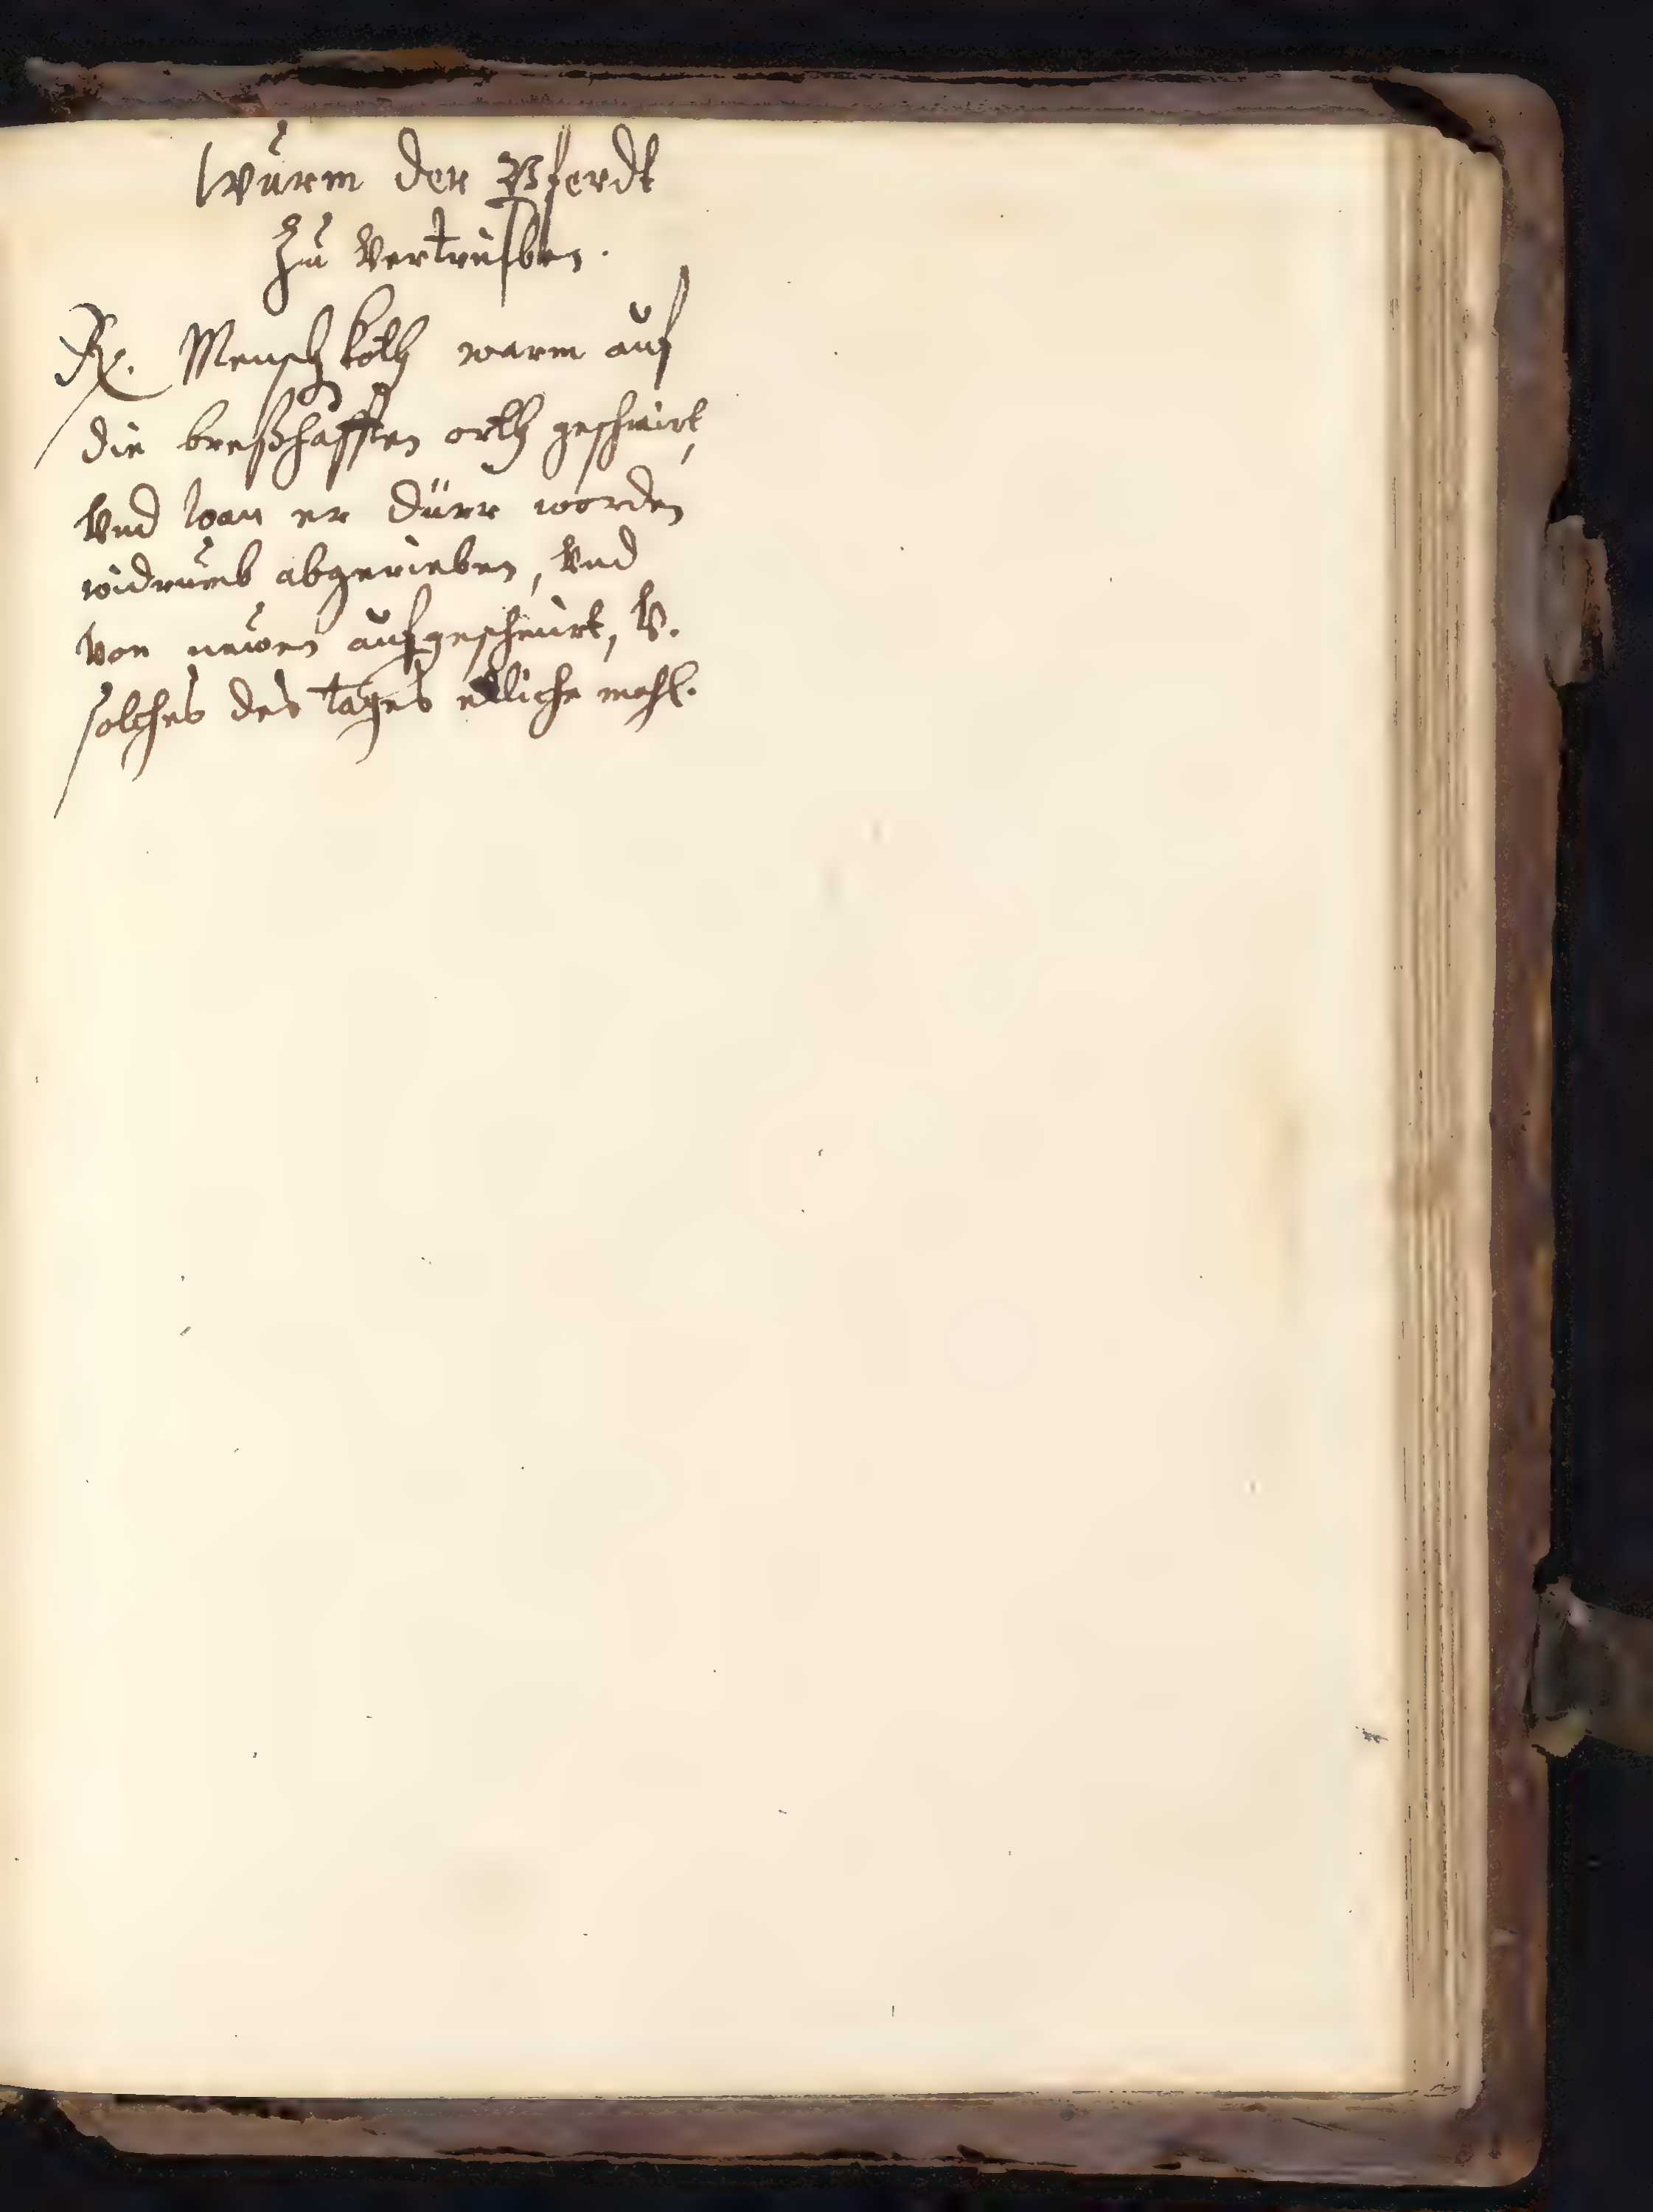 Wurm der Pferdt
Zu Vertreiben.
℞. Mensch koth warm auf
die bresthafften orth geschmirt,
Vnd wan er dürr worden
widrumb abgerieben, Vnd
Von newen aufgeschmirt, V.
solches des tages etliche mahl.